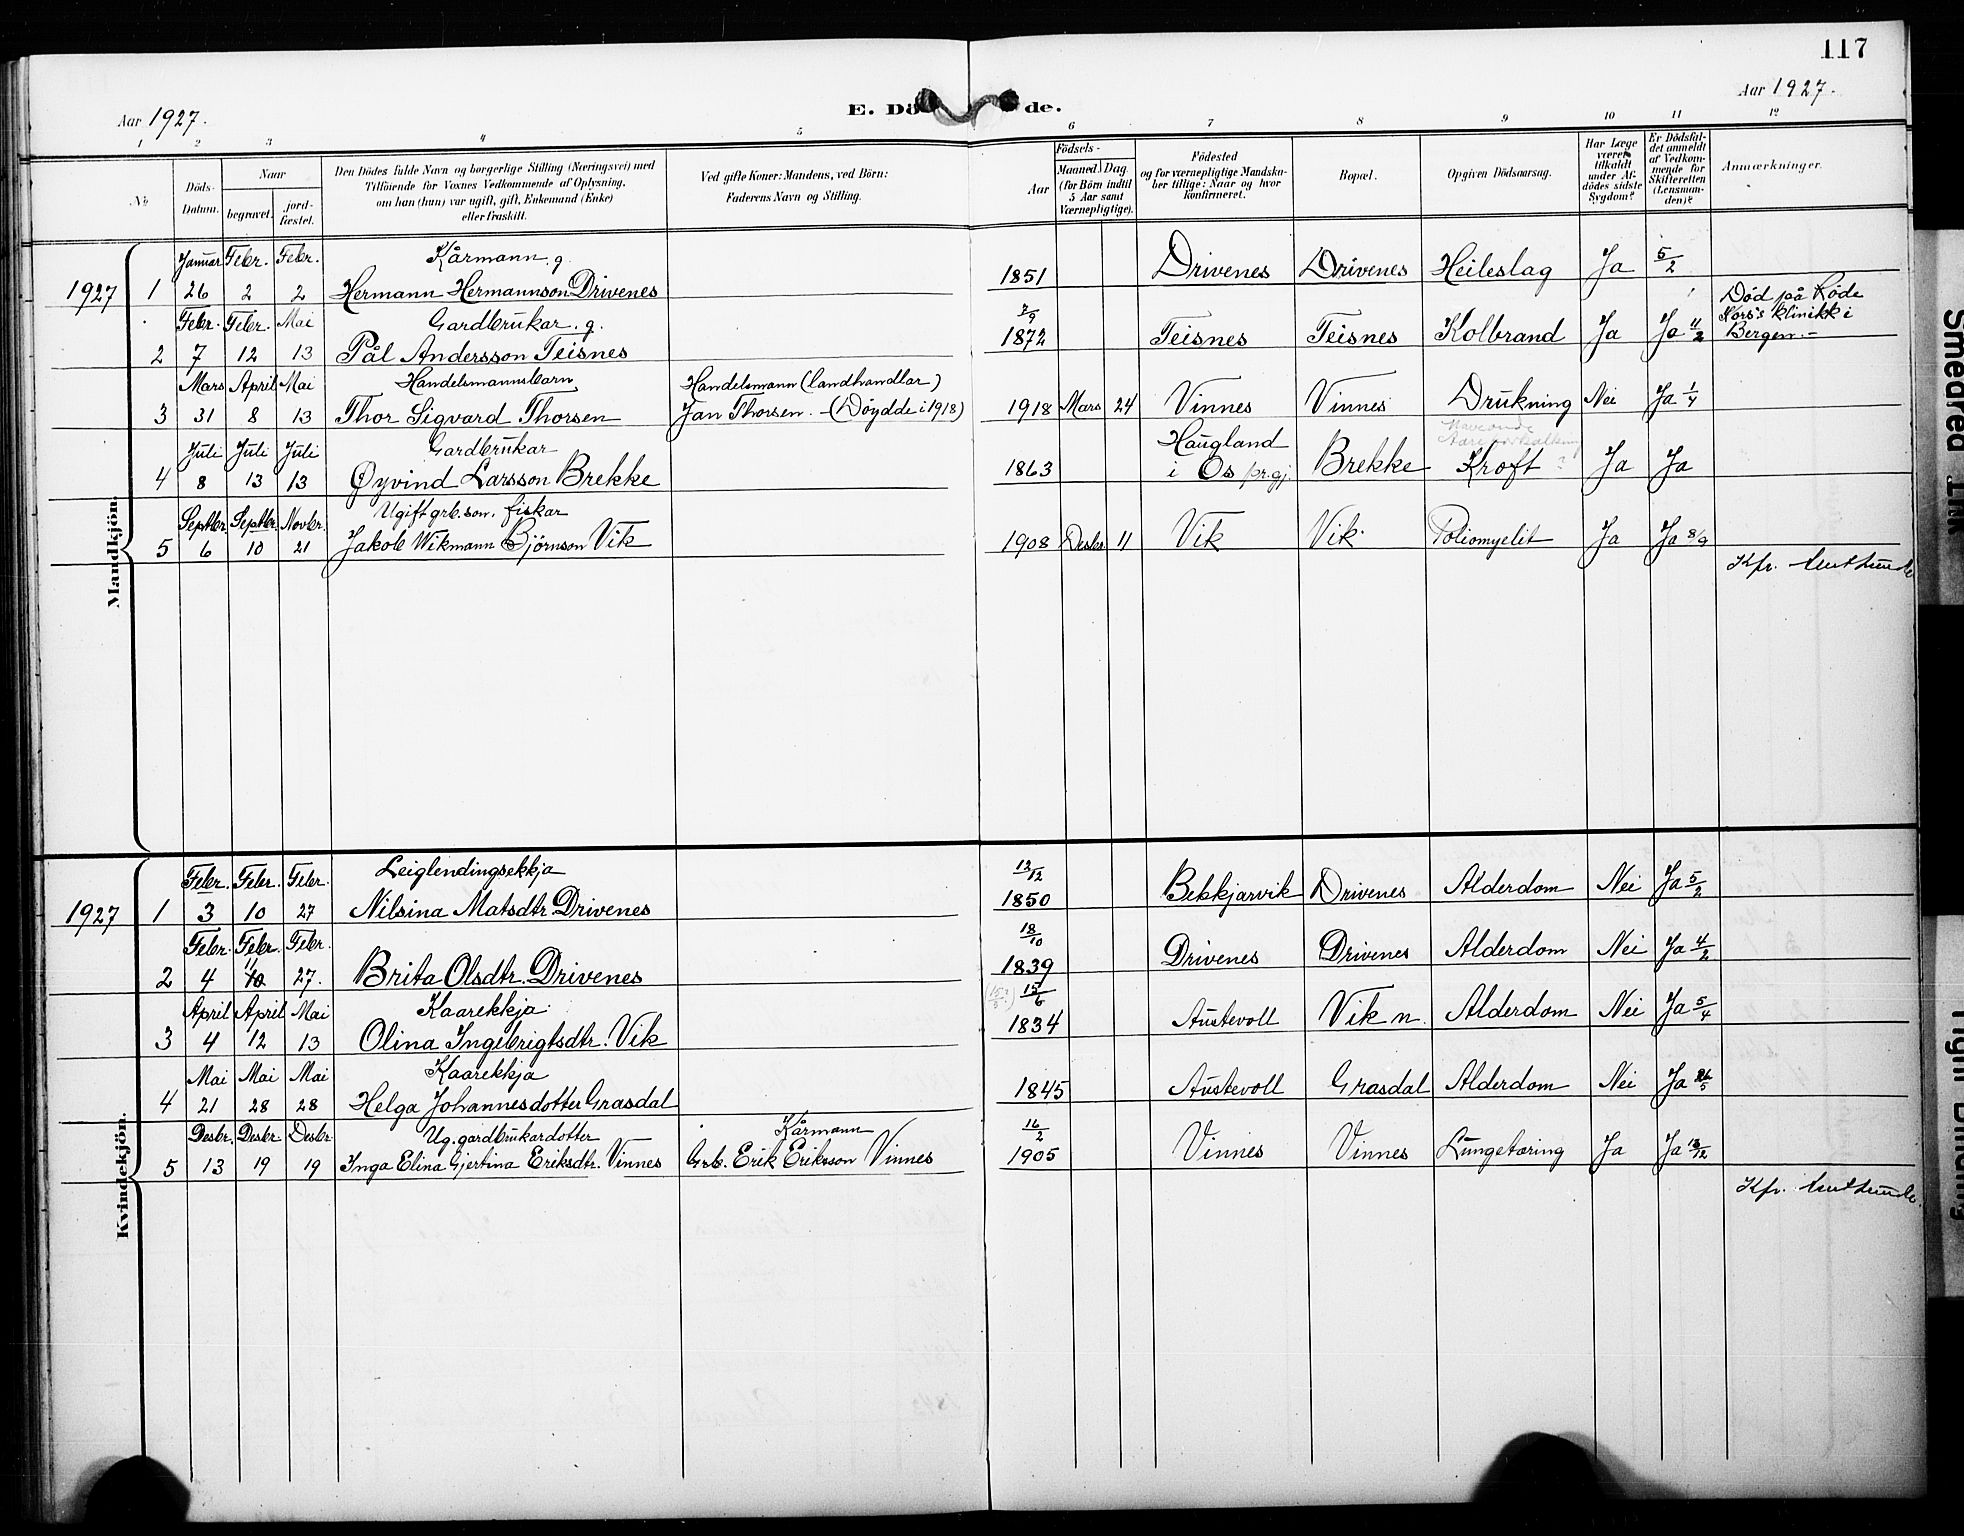 117
Aar 1927.
E. Dö de.
Aar 1927.
1 2 3 4 5 6 7 8 9 10 11 12
No
Döds-Datum.
Naar
begravet. jord-fæstet.
Den Dödes fulde Navn og borgerlige Stilling (Næringsvei) med
Tilföiende for Voxnes Vedkommende af Oplysning,
om han (hun) var ugift, gift, Enkemand (Enke)
eller fraskilt.
Ved gifte Koner: Mandens, ved Börn:
Faderens Navn og Stilling.
Födsels-
Aar Maaned Dag
(for Börn indtil
5 Aar samt
Værnepligtige).
Födested
og for værnepligtige Mandska-
ber tillige: Naar og hvor
konfirmeret.
Bopæl.
Opgiven Dödsaarsag.
Har Læge
været
tilkaldt
under Af-
dödes sidste
Sygdom?
Er Dödsfal-
det anmeldt
af Vedkom-
mende for
Skifteretten
(Lensman-
den)?
Anmærkninger.
Mandkjön.
Januar Febr. Febr. Kårmann. g.
1927 1 26 2 2 Hermann Hermannson Drivenes 1851 Drivenes Drivenes Heileslag Ja 5/2
Febr. Febr. Mai Gardbrukar. g.
2 7 12 13 Pål Andersson Teisnes 1872 Teisnes Teisnes Kolbrand Ja Ja 11/2
Död på Röde
Kors's klinikk i
Bergen.-
Mars April Mai Handelsmannsbarn Handelsmann (landhandlar)
3 31 8 13 Thor Sigvard Thorsen Jan Thorsen. - (Döydde i 1918) 1918 Mars 24 Vinnes Vinnes Drukning Nei Ja 1/4
Juli Juli Juli Gardbrukar Haugland
4 8 13 13 Øyvind Larsson Brekke 1863 i Os pr.gj. Brekke Kroft ? Ja Ja
Septbr. Septbr. Novbr. Ugift grb. son. fiskar
5 6 10 21 Jakob Wikmann Björnson Vik 1908 Desbr 11 Vik Vik. Poliomyelit Ja Ja 8/9
Kfr.
Kvindekjön.
Febr. Febr. Febr. Leiglendingsekkja 12/12
1927 1 3 10 27 Nilsina Matsdtr. Drivenes 1850 Bekkjarvik Drivenes Alderdom Nei Ja 5/2
Febr. Febr. Febr. 18/10
2 4 11 27. Brita Olsdtr. Drivenes 1839 Drivenes Drivenes Alderdom Nei Ja 4/2
April April Mai Kaarekkja. 15/6
3 4 12 13 Olina Ingebrigtsdtr. Vik 1834 Austevoll Vik n. Alderdom Nei Ja 5/4
Mai Mai Mai Kaarekkja
4 21 28 28 Helga Johannesdotter Grasdal 1845 Austevoll Grasdal Alderdom Nei Ja
Desbr. Desbr. Desbr. Ug. gardbrukardotter Kårmann 16/2
5 13 19 19 Inga Elina Gjertina Eriksdtr. Vinnes Grb. Erik Eriksson Vinnes 1905 Vinnes Vinnes Lungetæring Ja Ja 13/12
Kfr.